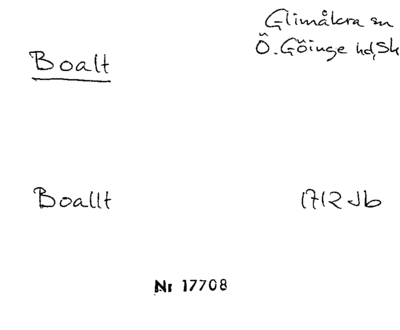 Glimåkra sn
Ö. Göinge hd, Sk
Boalt
Boallt 1712 Jb
Nr 17708